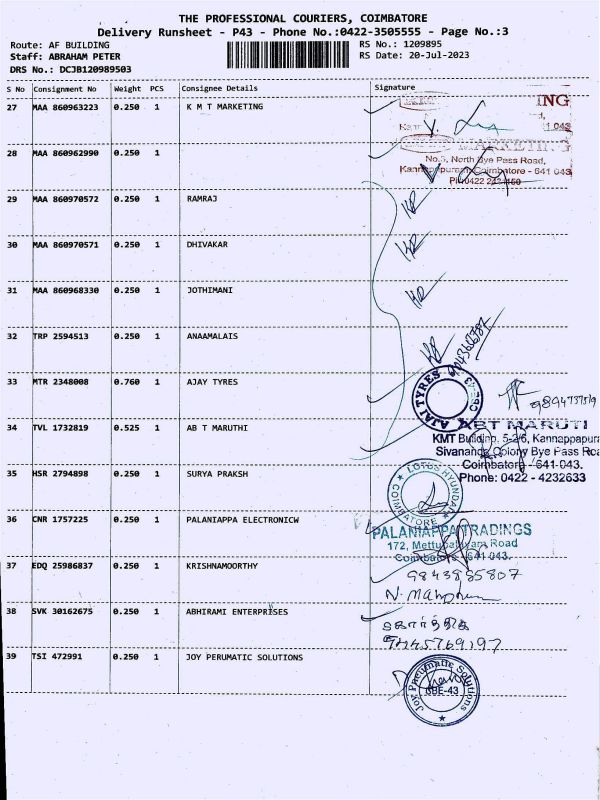 THE PROFESSIONAL COURIERS, COIMBATORE
Delivery Runsheet - P43 - Phone No.:0422-3505555 - Page No.:3
Route: AF BUILDING RS No.: 1209895
Staff: ABRAHAM PETER RS Date: 20-Jul-2023
DRS No.: DCJB120989503
S No Consignment No Weight PCS Consignee Details Signature
27 MAA 860963223 0.250 1 K M T MARKETING
ING
641 043
28 MAA 860962990 0.250 1
MARKETING
No.5, North Bye Pass Road,
Kannappapuram, Coimbatore - 641 043
29 MAA 860970572 0.250 1 RAMRAJ
30 MAA 860970571 0.250 1 DHIVAKAR
31 MAA 860968330 0.250 1 JOTHIMANI
32 TRP 2594513 0.250 1 ANAAMALAIS
33 MTR 2348008 0.760 1 AJAY TYRES
AJAI TYRES CBE-43
34 TVL 1732819 0.525 1 AB T MARUTHI
ABT MARUTI
KMT Building, 5-2/6, Kannappapura
Sivananda Colony Bye Pass Roa
Coimbatore - 641-043.
Phone: 0422 - 4232633
35 HSR 2794898 0.250 1 SURYA PRAKSH
LOTUS HYUNDAI COIMBATORE
36 CNR 1757225 0.250 1 PALANIAPPA ELECTRONICW
PALANIAPPA TRADINGS
172, Mettupalayam Road
Coimbatore - 641 043.
37 EDQ 25986837 0.250 1 KRISHNAMOORTHY
9843885807
38 SVK 30162675 0.250 1 ABHIRAMI ENTERPRISES
9445769197
39 TSI 472991 0.250 1 JOY PERUMATIC SOLUTIONS
Joy Pneumatic Solutions
CBE-43